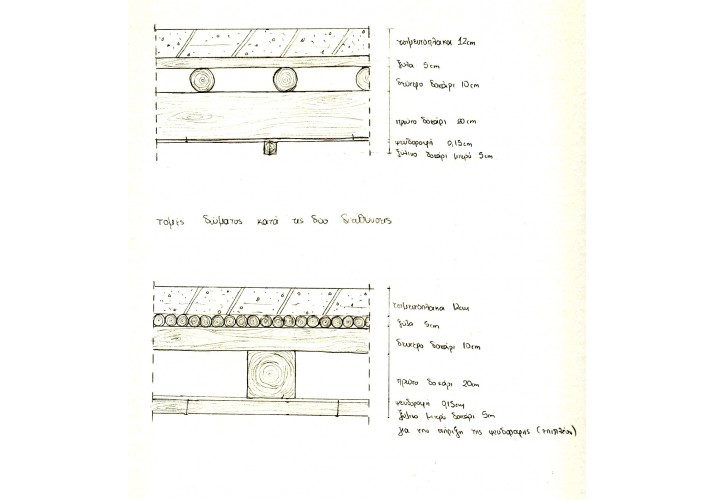 τσιμεντόπλακα 12cm
ξύλα 5cm
δεύτερο δοκάρι 10cm
πρώτο δοκάρι 20cm
ψευδοροφή 0,15cm
ξύλινο δοκάρι μικρό 5cm
τομές δώματος κατά τις δύο διευθύνσεις
τσιμεντόπλακα 12cm
ξύλα 5cm
δεύτερο δοκάρι 10cm
πρώτο δοκάρι 20cm
ψευδοροφή 0,15cm
ξύλινο μικρό δοκάρι 5cm
για την στήριξη της ψευδοροφής